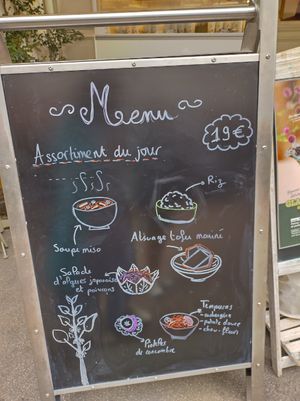 Menu
19€
Assortiment du jour
Riz
Soupe miso
Abusage tofu mariné
Salade
d'algues japonaises
et poivrons
Tempuras
- aubergine
- patate douce
- chou-fleur
Pickles
de concombre